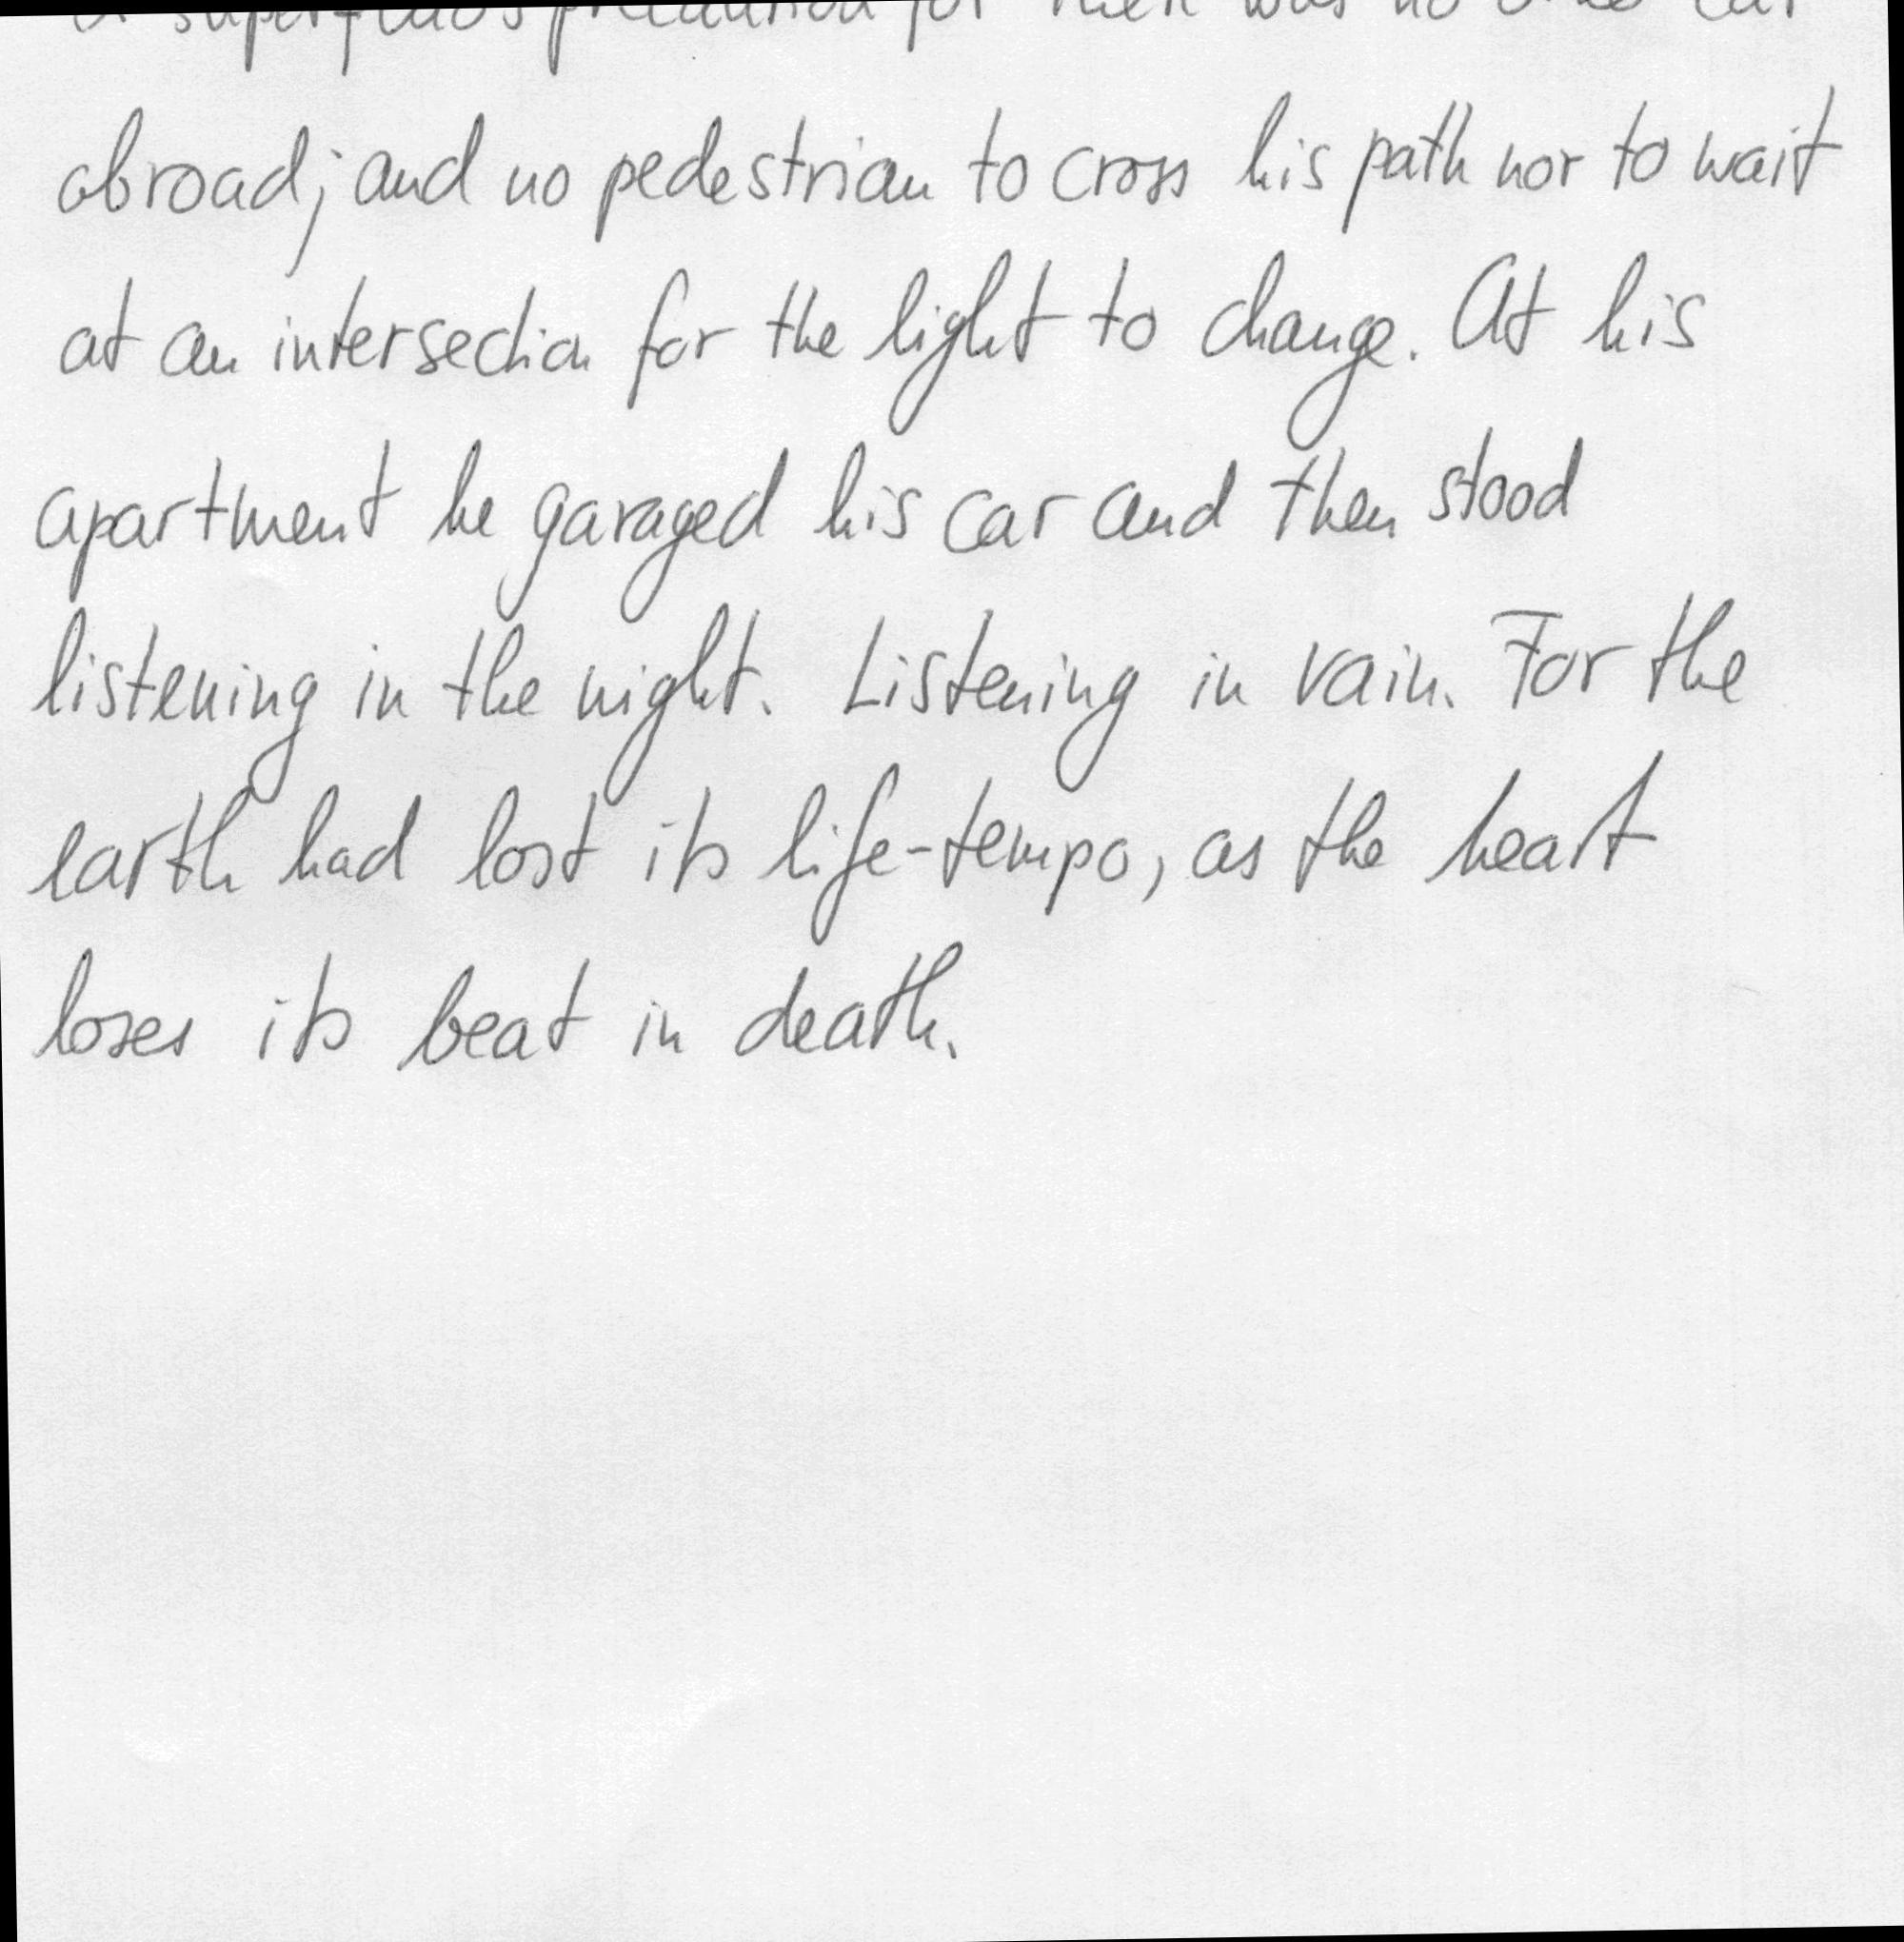 a superfluous precaution for there was no other car
abroad; and no pedestrian to cross his path nor to wait
at an intersection for the light to change. At his
apartment he garaged his car and then stood
listening in the night. Listening in vain. For the
earth had lost its life-tempo, as the heart
loses its beat in death.